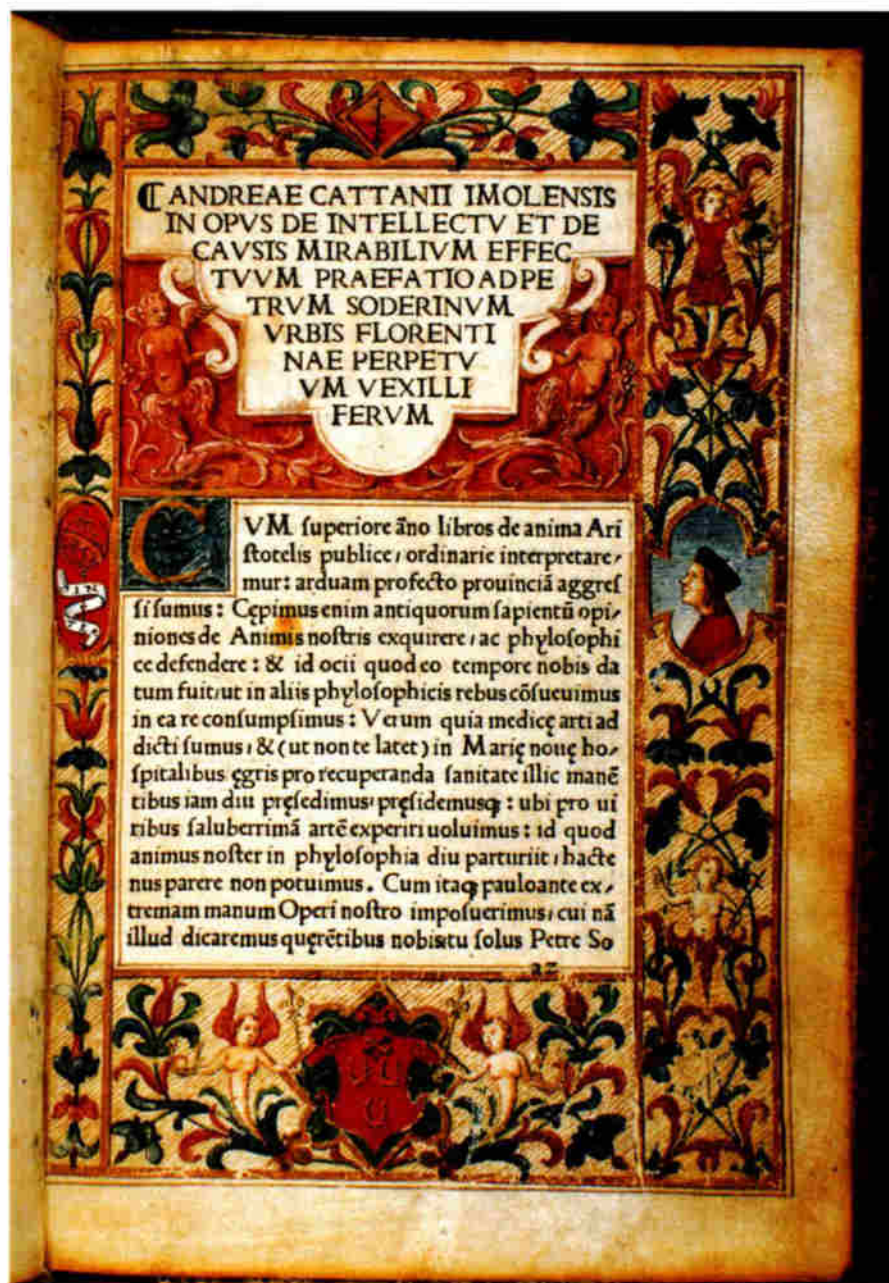 ANDREAE CATTANII IMOLENSIS
IN OPVS DE INTELLECTV ET DE
CAVSIS MIRABILIVM EFFEC
TVVM PRAEFATIO AD PE
TRVM SODERINVM
VRBIS FLORENTI
NAE PERPETV
VM VEXILLI
FERVM
CVM ſuperiore āno libros de anima Ari
ſtotelis publice, ordinarie interpretare,
mur: arduam profecto prouinciā aggreſ
ſi ſumus: Cępimus enim antiquorum ſapientū opi,
niones de Animis noſtris exquirere, ac phyloſophi
ce defendere: & id ocii quod eo tempore nobis da
tum fuit, ut in aliis phyloſophicis rebus cōſueuimus
in ea re conſumpſimus: Verum quia medicę arti ad
dicti ſumus, & (ut non te latet) in Marię nouę ho,
ſpitalibus ęgris pro recuperanda ſanitate illic manē
tibus iam diu pręſedimus, pręſidemusꝗ: ubi pro ui
ribus ſaluberrimā artē experiri uoluimus: id quod
animus noſter in phyloſophia diu parturiit, hacte
nus parere non potuimus. Cum itaꝗ pauloante ex,
tremam manum Operi noſtro impoſuerimus, cui nā
illud dicaremus quęrētibus nobis, tu ſolus Petre So